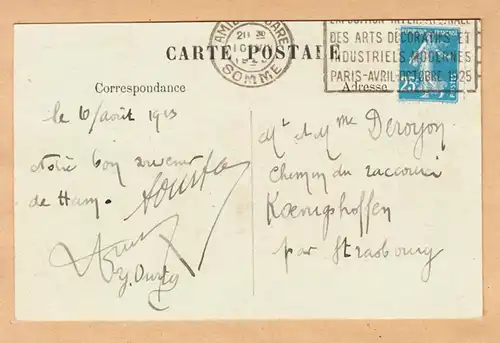 AMIENS GARE
SOMME
EXPOSITION INTERNATIONALE
DES ARTS DÉCORATIFS ET
INDUSTRIELS MODERNES
PARIS-AVRIL-OCTOBRE 1925
CARTE POSTALE
Correspondance
Adresse
25
le 6/août 1923
Notre bon souvenir
de Ham.
Mr et Mme Deroyon
Chemin du raccourci
Kœnigshoffen
par Strasbourg